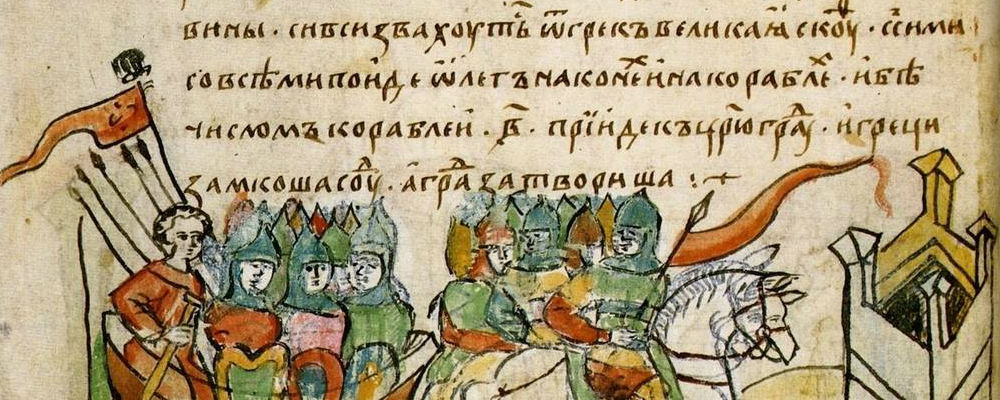 вины · сивси звахоуть ѿ грекъ великаꙗ скоуⷴ · с сими
совсѣми поиде ѡлегъ на конеⷯ и на кораблеⷯ · и бѣ
числомъ кораблеи · в҃ · прїиде къ црⷭюграⷣ · и греци
замкоша соуⷣ · а граⷣ затвориша :~